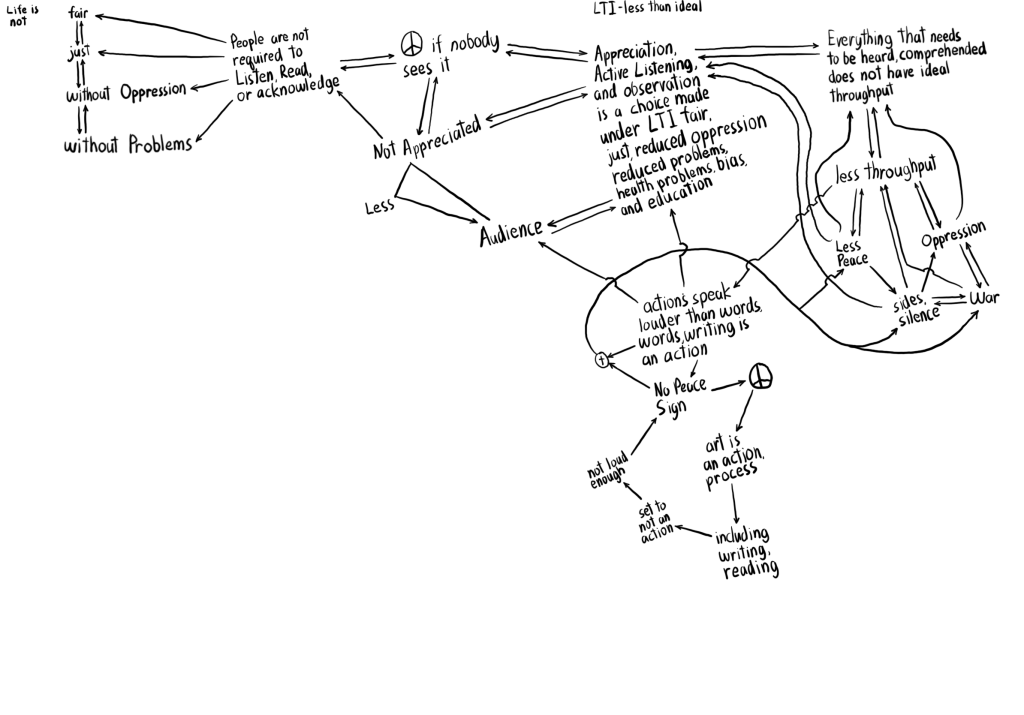 Life is
not
fair
just
without Oppression
without Problems
People are not
required to
Listen, Read,
or acknowledge
if nobody
sees it
Not Appreciated
Less
Audience
LTI-less than ideal
Appreciation,
Active Listening,
and observation
is a choice made
under LTI fair,
just, reduced oppression
reduced problems,
health problems, bias,
and education
Everything that needs
to be heard, comprehended
does not have ideal
throughput
less throughput
Less
Peace
Oppression
sides,
silence
War
actions speak
louder than words,
words, writing is
an action
+
No Peace
Sign
art is
an action,
process
including
writing,
reading
set to
not an
action
not loud
enough